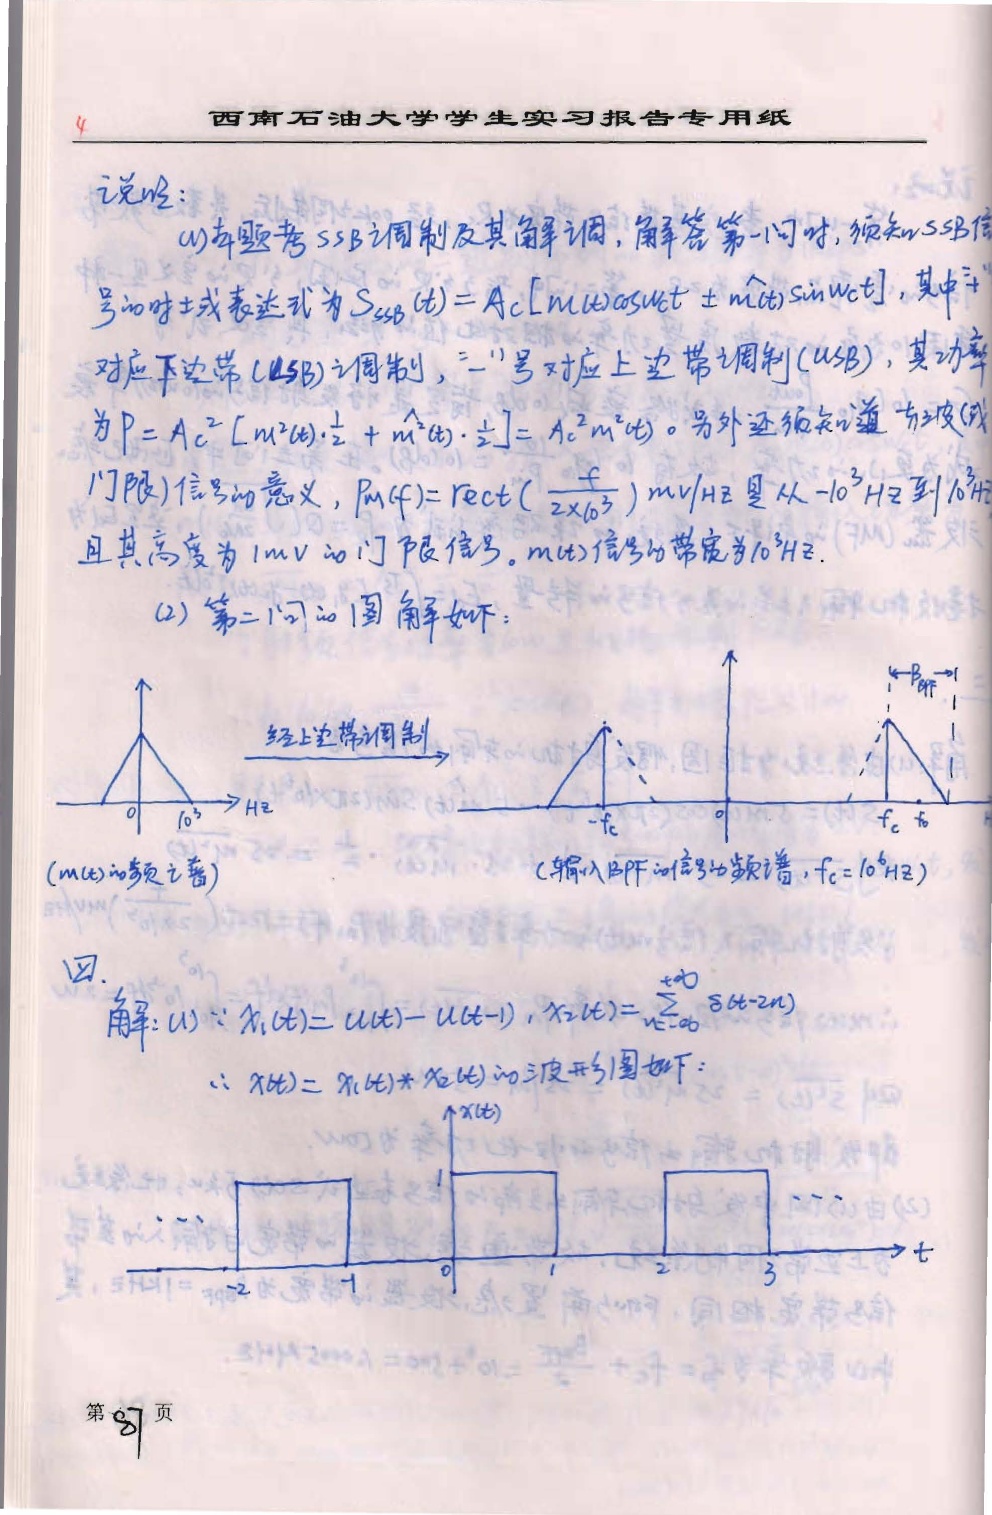 4
西南石油大学学生实习报告专用纸
说明:
(1)本题考SSB调制及其解调,解答第一问时,须知SSB信
号的时域表达式为S_SSB(t)=A_c[m(t)cosω_ct ± m̂(t)sinω_ct],其中"+"
对应下边带(LSB)调制,"-"号对应上边带调制(USB),其功率
为P=A_c²[m²(t)·½+m̂²(t)·½]=A_c²m²(t)。另外还须知道方波(或
门限)信号的意义,P_m(f)=rect(f/2×10³)mv/HZ是从-10³HZ到10³HZ
且其高度为1mv的门限信号。m(t)信号的带宽为10³HZ.
(2)第二问的图解如下:
经上边带调制
B_BPF
0 10³ HZ
-f_c 0 f_c f_0 H
(m(t)的频谱)
(输入BPF的信号的频谱,f_c=10⁶HZ)
四.
解:(1)∵x₁(t)=u(t)-u(t-1),x₂(t)=∑_{n=-∞}^{+∞}δ(t-2n)
∴x(t)=x₁(t)*x₂(t)的波形图如下:
x(t)
1
... ...
-2 -1 0 1 2 3 t
第87页